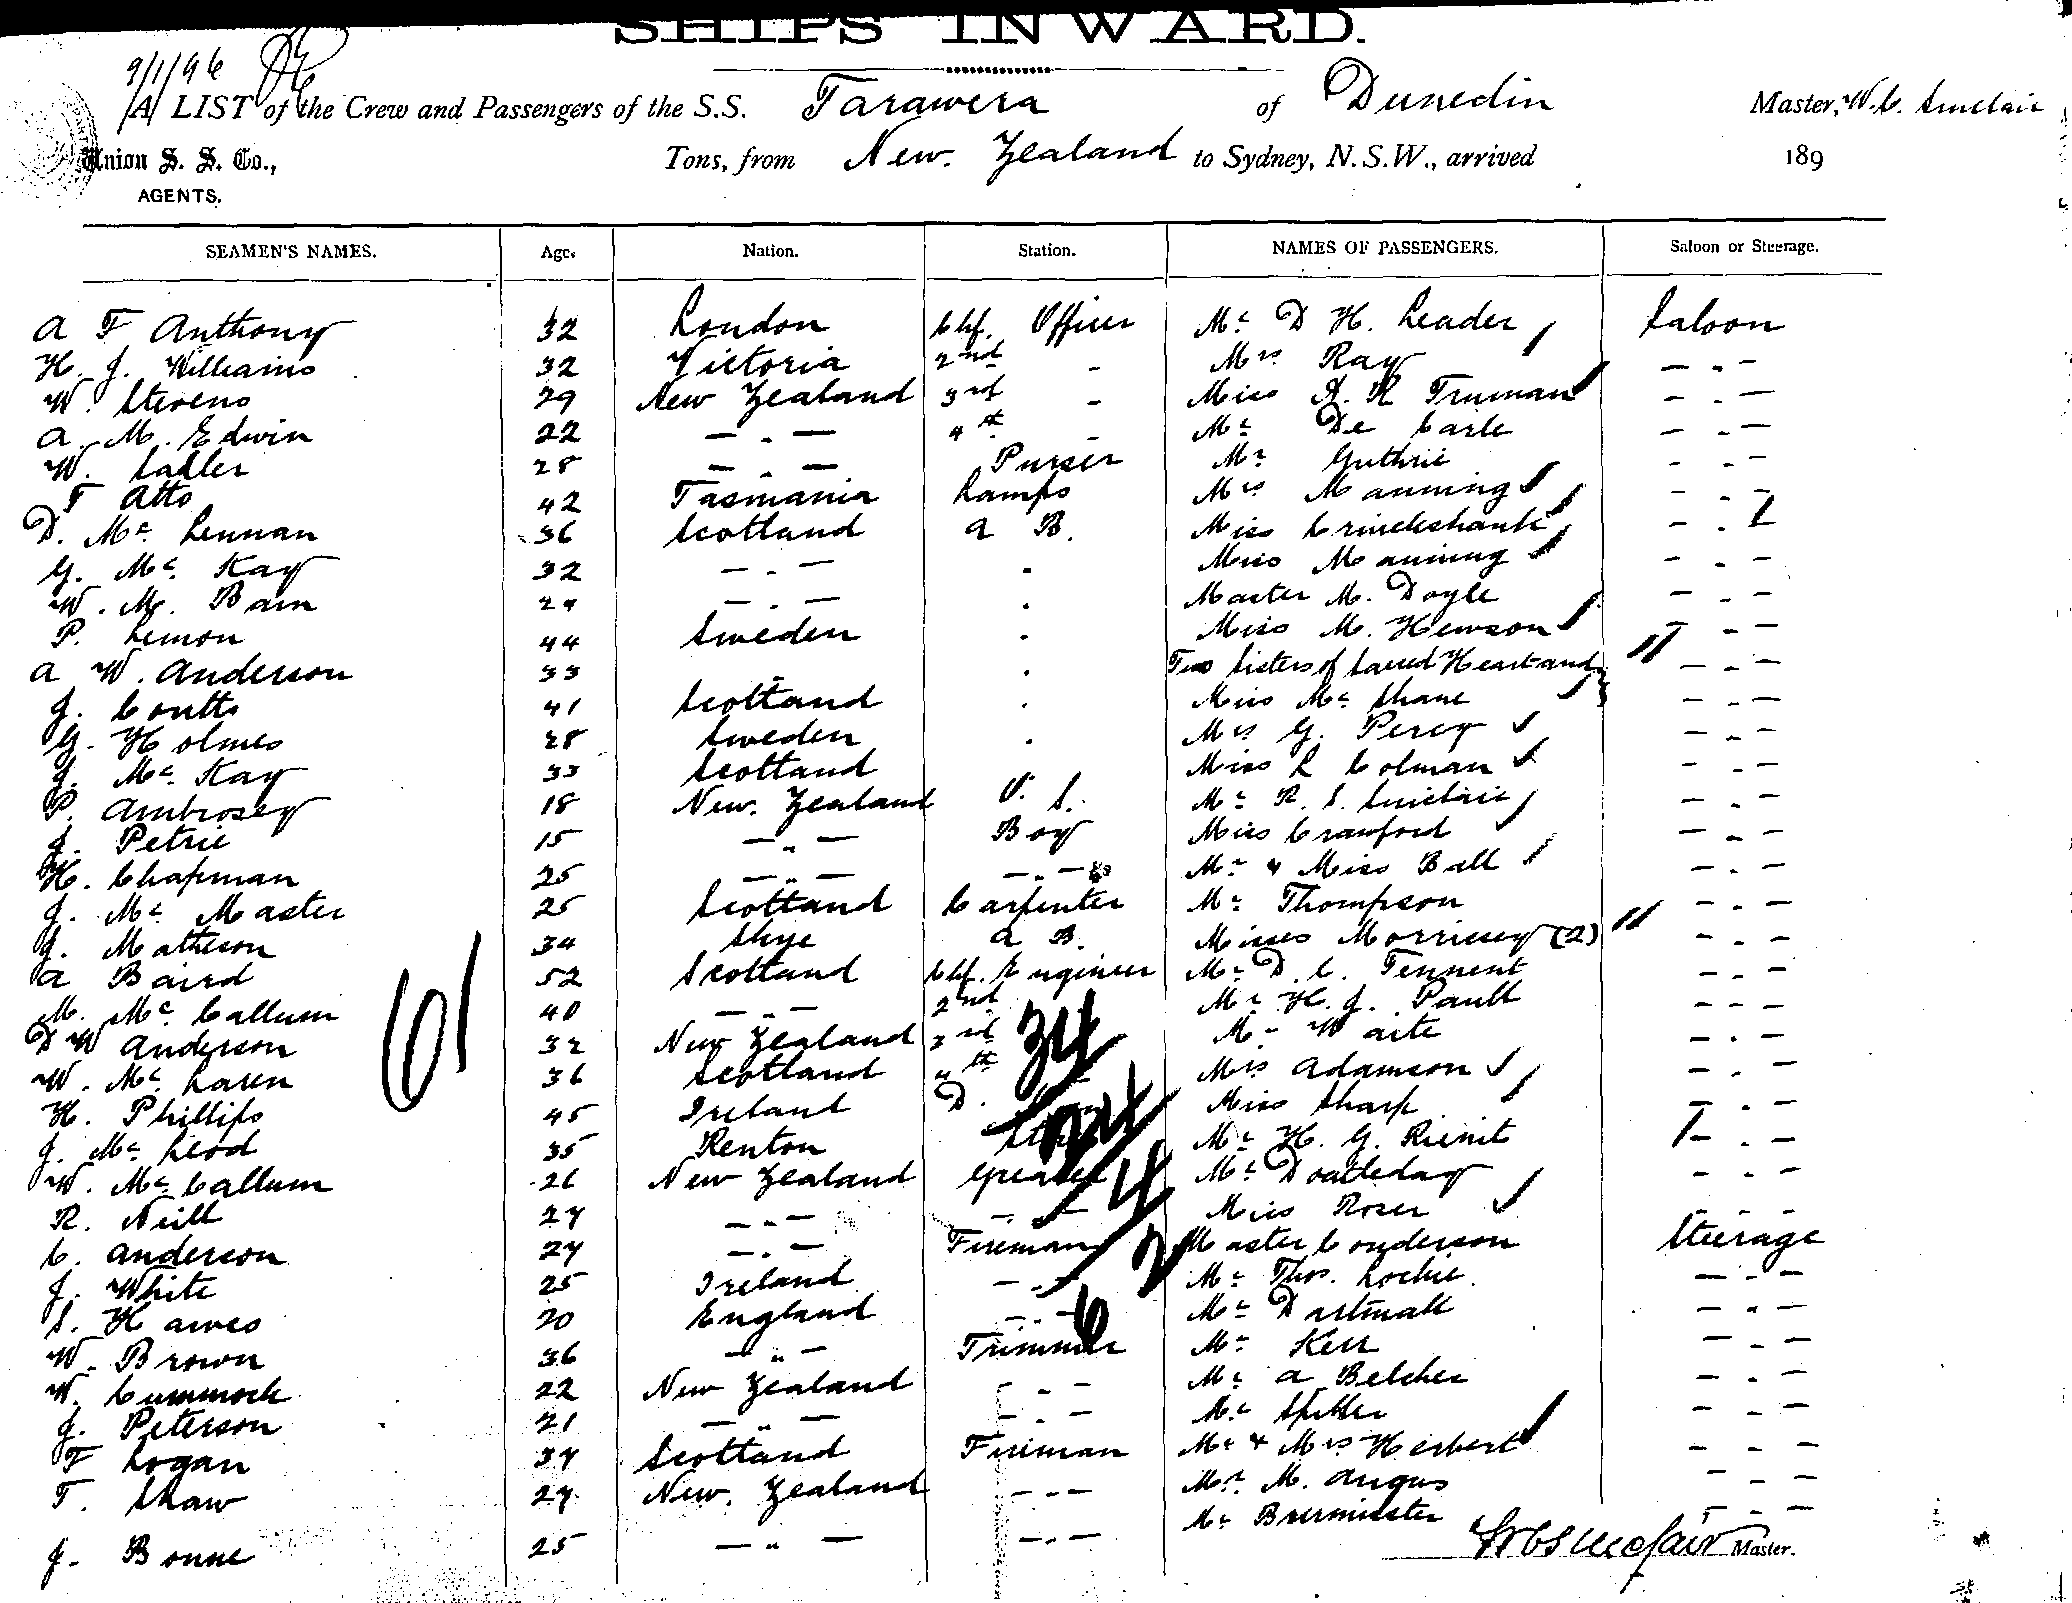 SHIPS INWARD.
9/1/96
A LIST of the Crew and Passengers of the S.S. Tarawera of Dunedin Master, W. C. Sinclair
Union S. S. Co., Tons, from New. Zealand to Sydney, N.S.W., arrived 189
AGENTS.
SEAMEN'S NAMES. Age. Nation. Station. NAMES OF PASSENGERS. Saloon or Steerage.
A F Anthony 32 London Chf. Officer Mr D H. Leader Saloon
H. J. Williams 32 Victoria 2nd - Mrs Ray - . -
W. Stevens 29 New Zealand 3rd - Miss A. R Truman - . -
A. M. Edwin 22 - . - 4th - Mr De Carle - . -
W. Sadler 28 - . - Purser Mr Guthrie - . -
F Atto 42 Tasmania Lamps Mrs Manning - . -
D. Mc Lennan 36 Scotland A B. Miss Cruickshank - .
G. Mc Kay 32 - . - . Miss Manning - . -
W. M. Bain 29 - . - . Master M. Doyle - . -
P. Lemon 44 Sweden . Miss M. Hewson - -
A W. Anderson 33 . Two Sisters of Sacred Heart and - . -
J. Coutts 41 Scotland . Miss Mc Shane - . -
G. Holmes 28 Sweden . Mrs G. Percy - . -
J. Mc Kay 33 Scotland Miss L Colman - . -
P. Ambrosey 18 New. Zealand O. S. Mr R. S. Sinclair - . -
J. Petrie 15 - " - Boy Miss Crawford - . -
H. Chapman 25 - " - - . - Mr & Miss Ball - . -
J. Mc Master 25 Scotland Carpenter Mr Thompson - . -
J. Matheson 34 Skye A B. Misses Morrissey (2) - . -
A Baird 52 Scotland Chf. Engineer Mr D. C. Tennent - . -
M. Mc Callum 40 - . - 2nd Mr H. J. Paull - - -
D W Anderson 32 New Zealand 3rd 34 Mr Waite - . -
W. Mc Laren 36 Scotland 4th Mrs Adamson - . -
H. Phillips 45 Ireland D. Miss Sharp - . -
J. Mc Leod 35 Renton Mr H. G. - . -
W. Mc Callum 26 New Zealand Greaser Mr - - -
R. Neill 27 - - - Miss Roser - - -
C. Anderson 27 - . - Fireman Master Conderson Steerage
J. White 25 Ireland - . - Mr Thos. Lockie. - . -
S. Hawes 20 England - . - 6 Mr - . -
W. Brown 36 - " - Trimmer Mr Kerr - . -
W. Cummock 22 New Zealand - . - Mr A Belcher - . -
J. Peterson 21 - " - - . - Mr - . -
F Logan 37 Scotland Fireman Mr & Mrs Herbert - - -
T. Shaw 27 New. Zealand - - - Mr. M. Angus - - -
J. Bonne 25 - " - - . - Mr - . -
61
W C Sinclair Master.